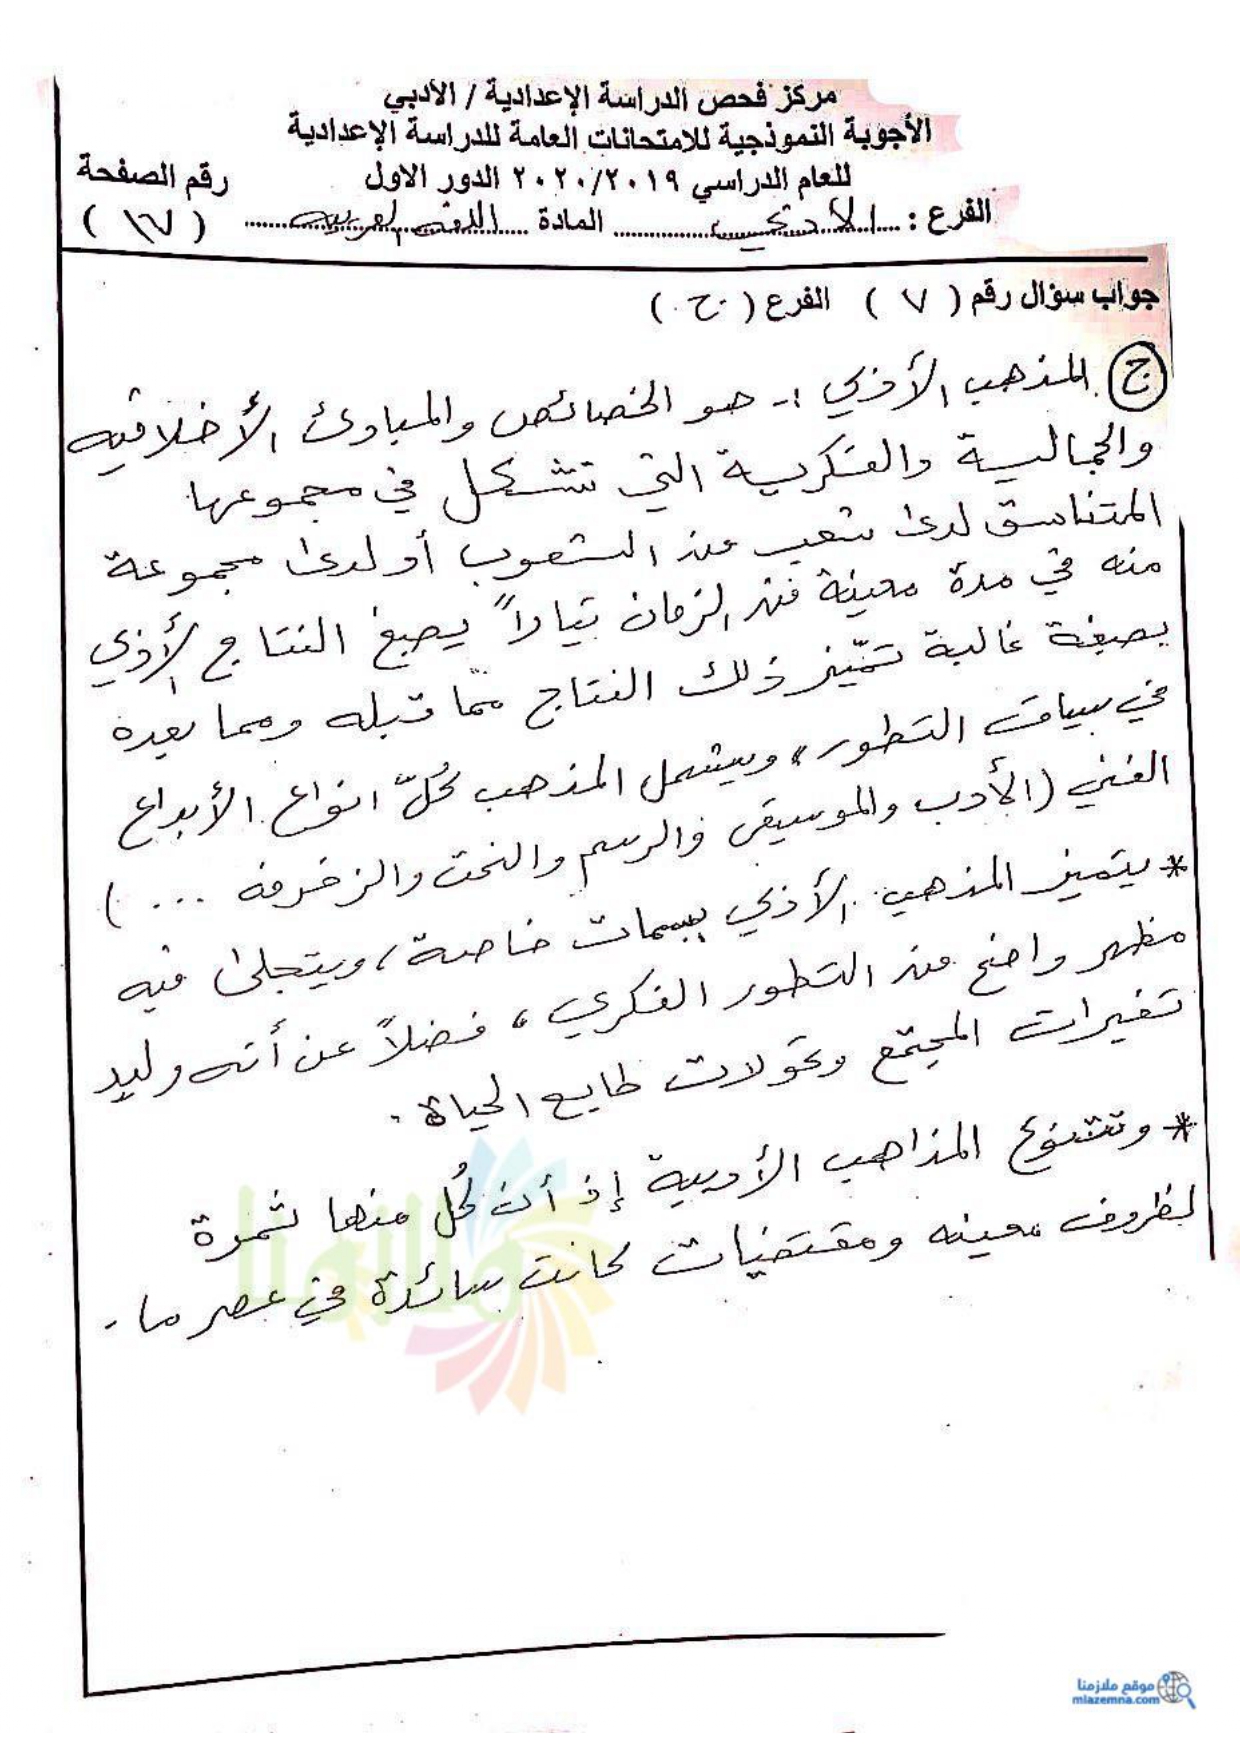 مركز فحص الدراسة الإعدادية / الأدبي
الأجوبة النموذجية للامتحانات العامة للدراسة الإعدادية
للعام الدراسي ٢٠٢٠/٢٠١٩ الدور الاول
رقم الصفحة
الفرع : الأدبي المادة اللغة العربية ( ١٧ )
جواب سؤال رقم ( ٧ ) الفرع ( ج )
ج المذهب الأدبي :- هو الخصائص والمبادئ الأخلاقيه
والجمالية والفكرية التي تشكل في مجموعها
المتناسق لدى شعب من الشعوب أو لدى مجموعة
منه في مدة معينة من الزمان تياراً يصبغ النتاج الأدبي
بصبغة غالبة تميّز ذلك النتاج ممّا قبله ومما بعده
في سياق التطور ، ويشمل المذهب كُلّ انواع الأبداع
الفني (الأدب والموسيقى والرسم والنحت والزخرفه ... )
* يتميز المذهب الأدبي بسمات خاصة ، ويتجلى فيه
مظهر واضح من التطور الفكري ، فضلاً عن أنه وليد
تغيرات المجتمع وتحولات طابع الحياة .
* وتتنوع المذاهب الأدبية إذ أن كُل منها ثمرة
لظروف معينه ومقتضيات كانت سائدة في عصر ما .
ملازمنا
موقع ملازمنا
mlazemna.com